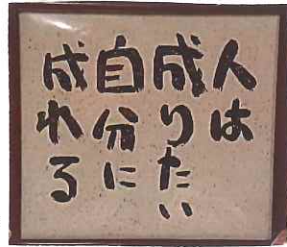 人は
成りたい
自分に
成れる